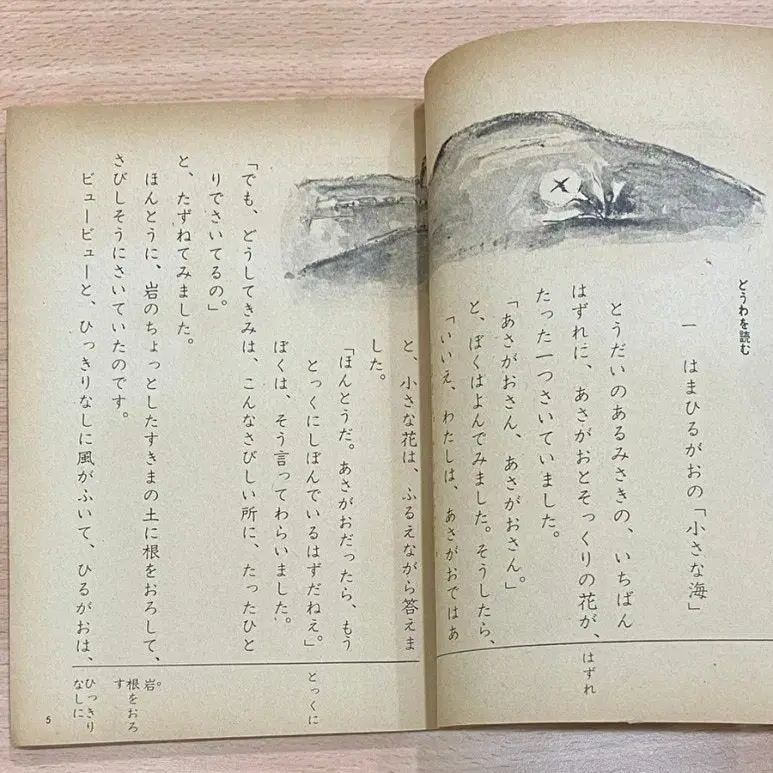 どうわを読む
一 はまひるがおの「小さな海」
とうだいのあるみさきの、いちばん
はずれに、あさがおとそっくりの花が、
たった一つさいていました。
「あさがおさん、あさがおさん。」
と、ぼくはよんでみました。そうしたら、
「いいえ、わたしは、あさがおではあ
はずれ
と、小さな花は、ふるえながら答えま
した。
「ほんとうだ。あさがおだったら、もう
とっくにしぼんでいるはずだねえ。」
ぼくは、そう言ってわらいました。
「でも、どうしてきみは、こんなさびしい所に、たったひと
りでさいてるの」
と、たずねてみました。
ほんとうに、岩のちょっとしたすきまの土に根をおろして、
さびしそうにさいていたのです。
ビュービューと、ひっきりなしに風がふいて、ひるがおは、
とっくに
岩。
根をおろ
す
ひっきり
なしに
5